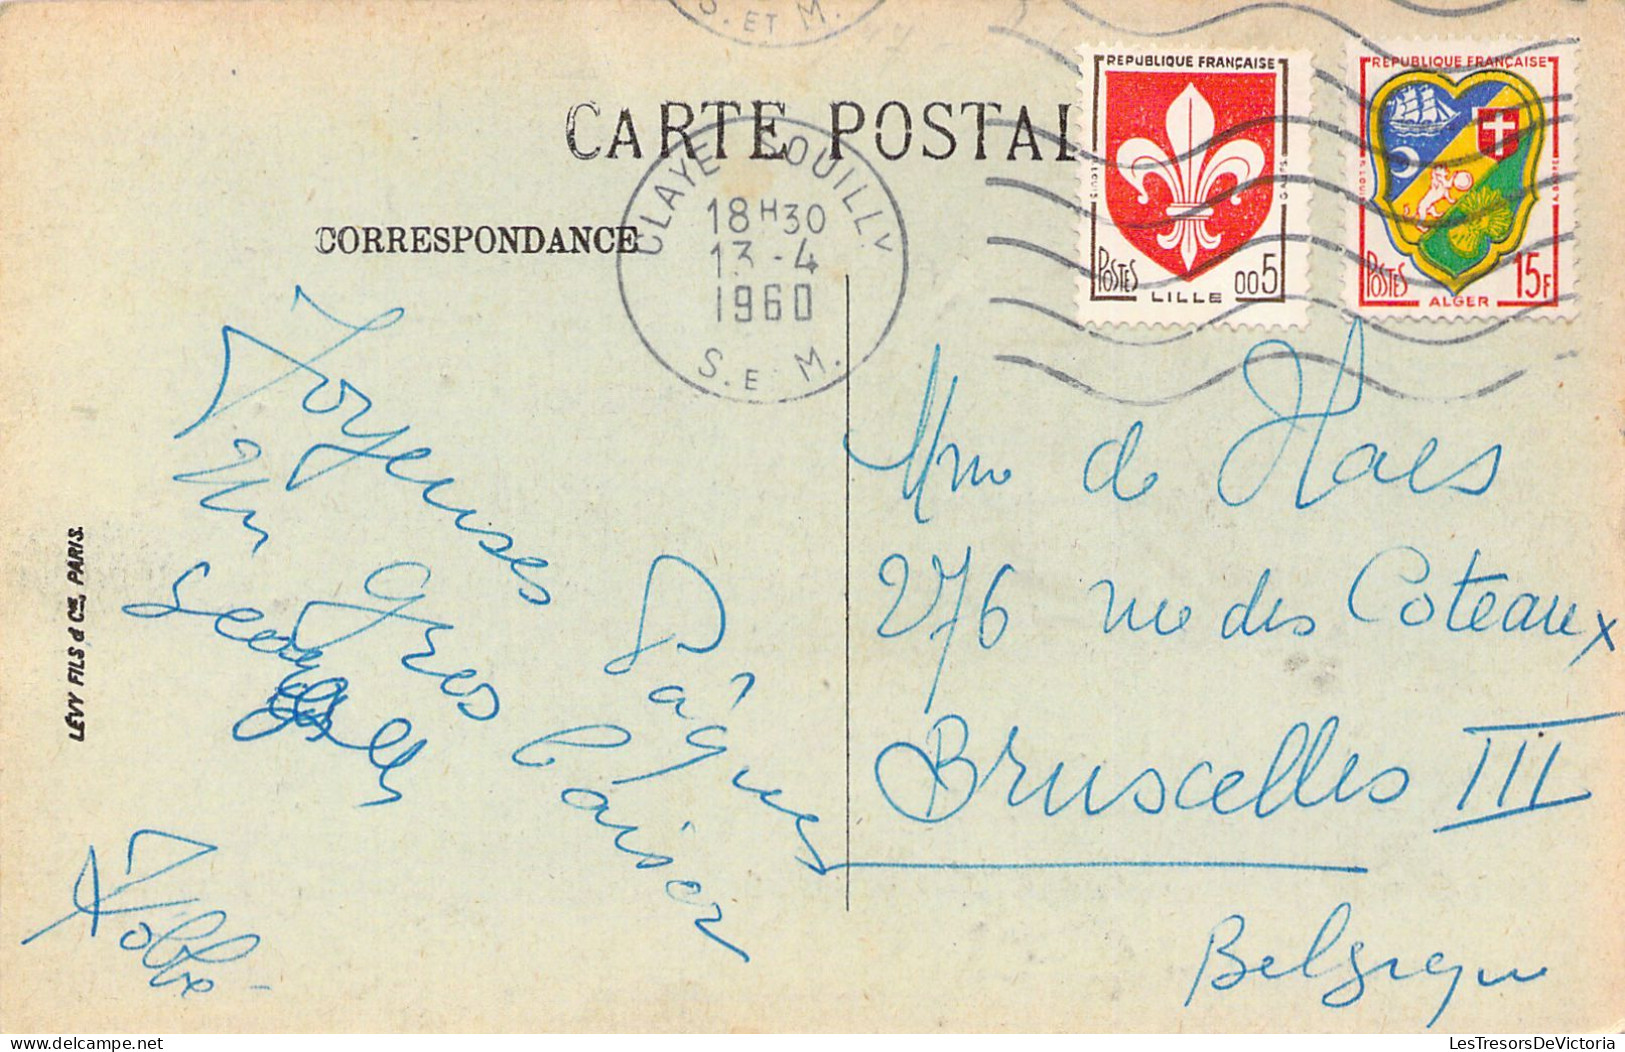 S. ET M.
CARTE POSTAL
CORRESPONDANCE
CLAYE SOUILLY
18H30
13-4
1960
S. E M.
REPUBLIQUE FRANÇAISE
POSTES
LILLE
005
REPUBLIQUE FRANÇAISE
POSTES
ALGER
15F
Joyeuses Pâques
Un gros baiser
Mme de Haes
276 rue des Coteaux
Bruxelles III
Belgique
LÉVY FILS & Cie, PARIS.
LesTresorsDeVictoria